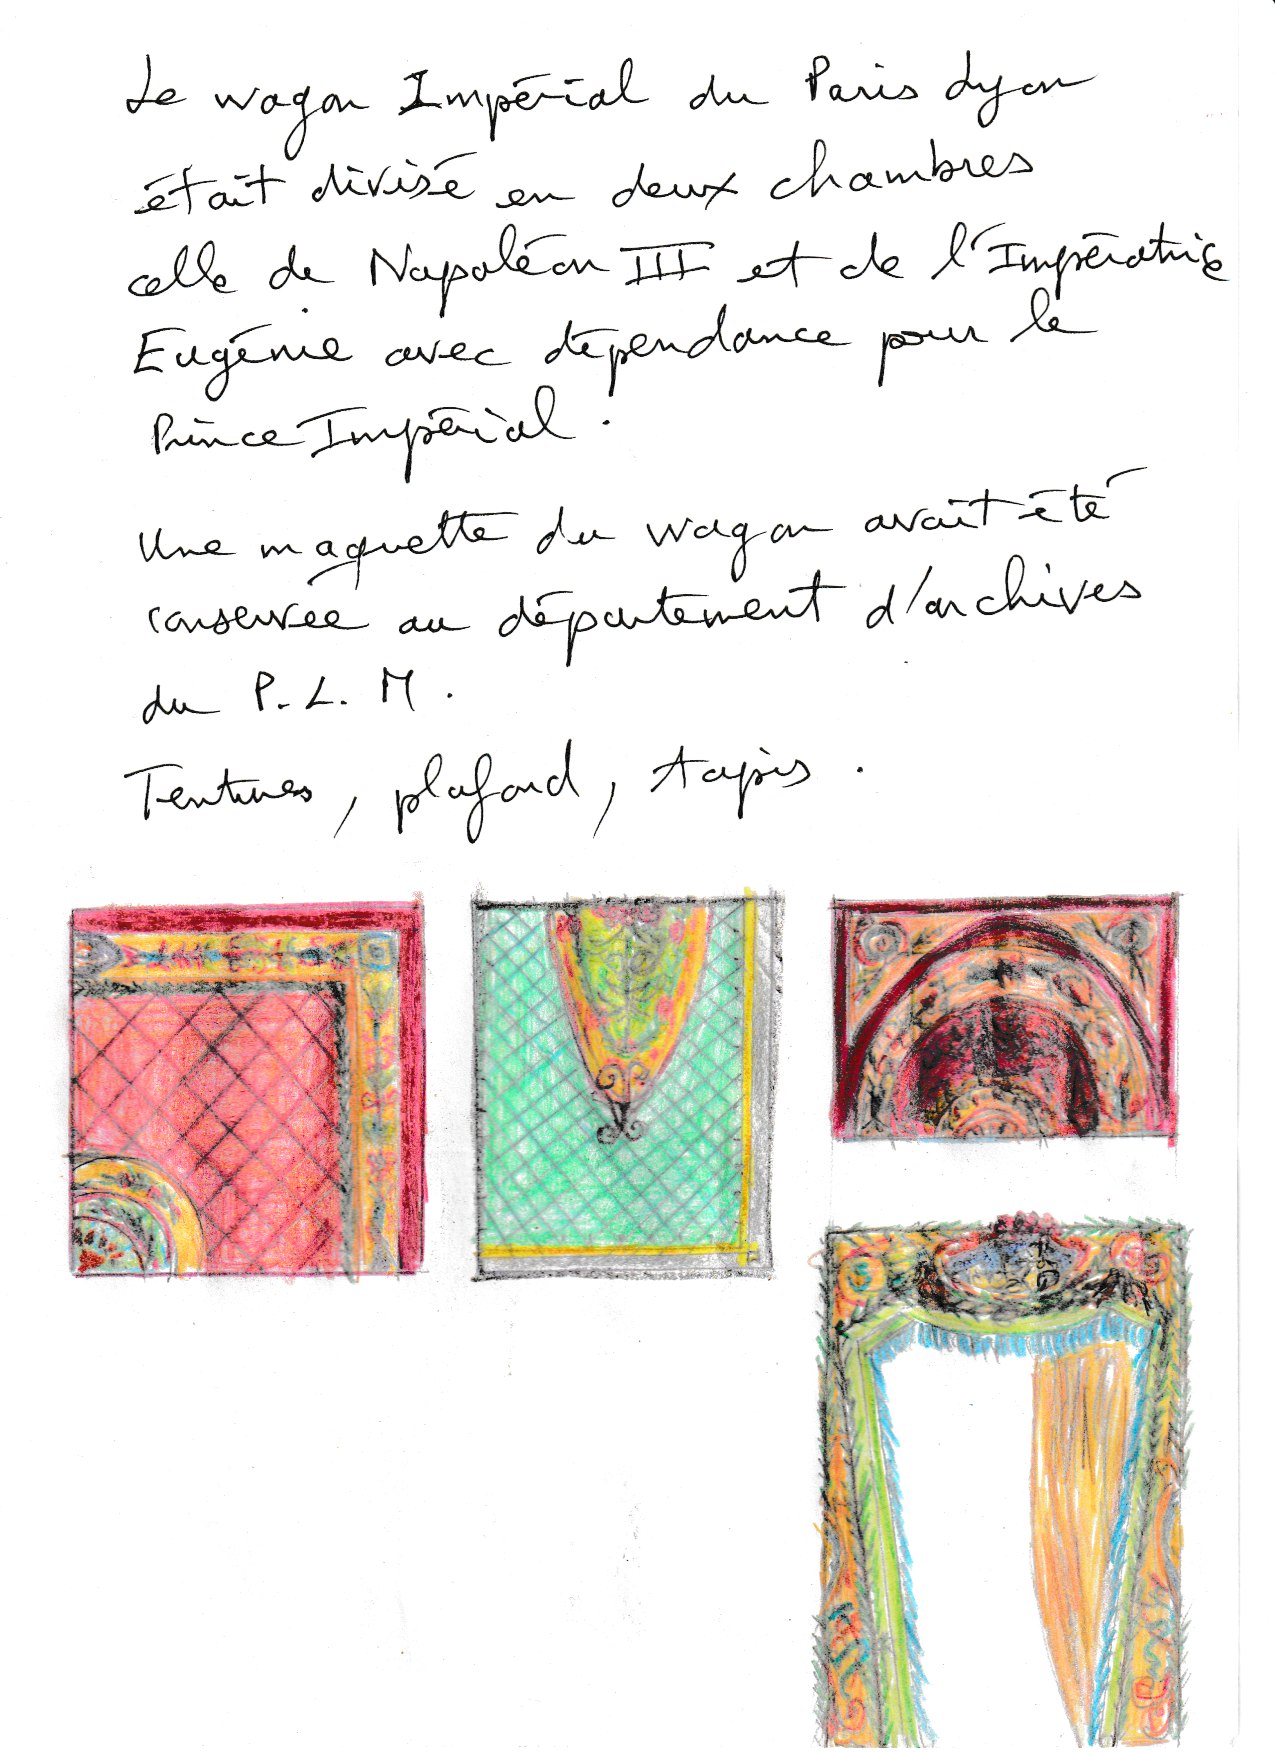 Le wagon Impérial du Paris Lyon
était divisé en deux chambres
celle de Napoléon III et de l'Impératrice
Eugénie avec dépendance pour le
Prince Impérial.
Une maquette du wagon avait été
conservée au département d'archives
du P.L.M.
Tentures, plafond, tapis.